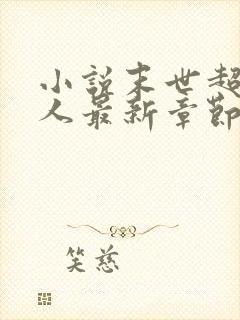 小说末世超
人最新章节
笑慈